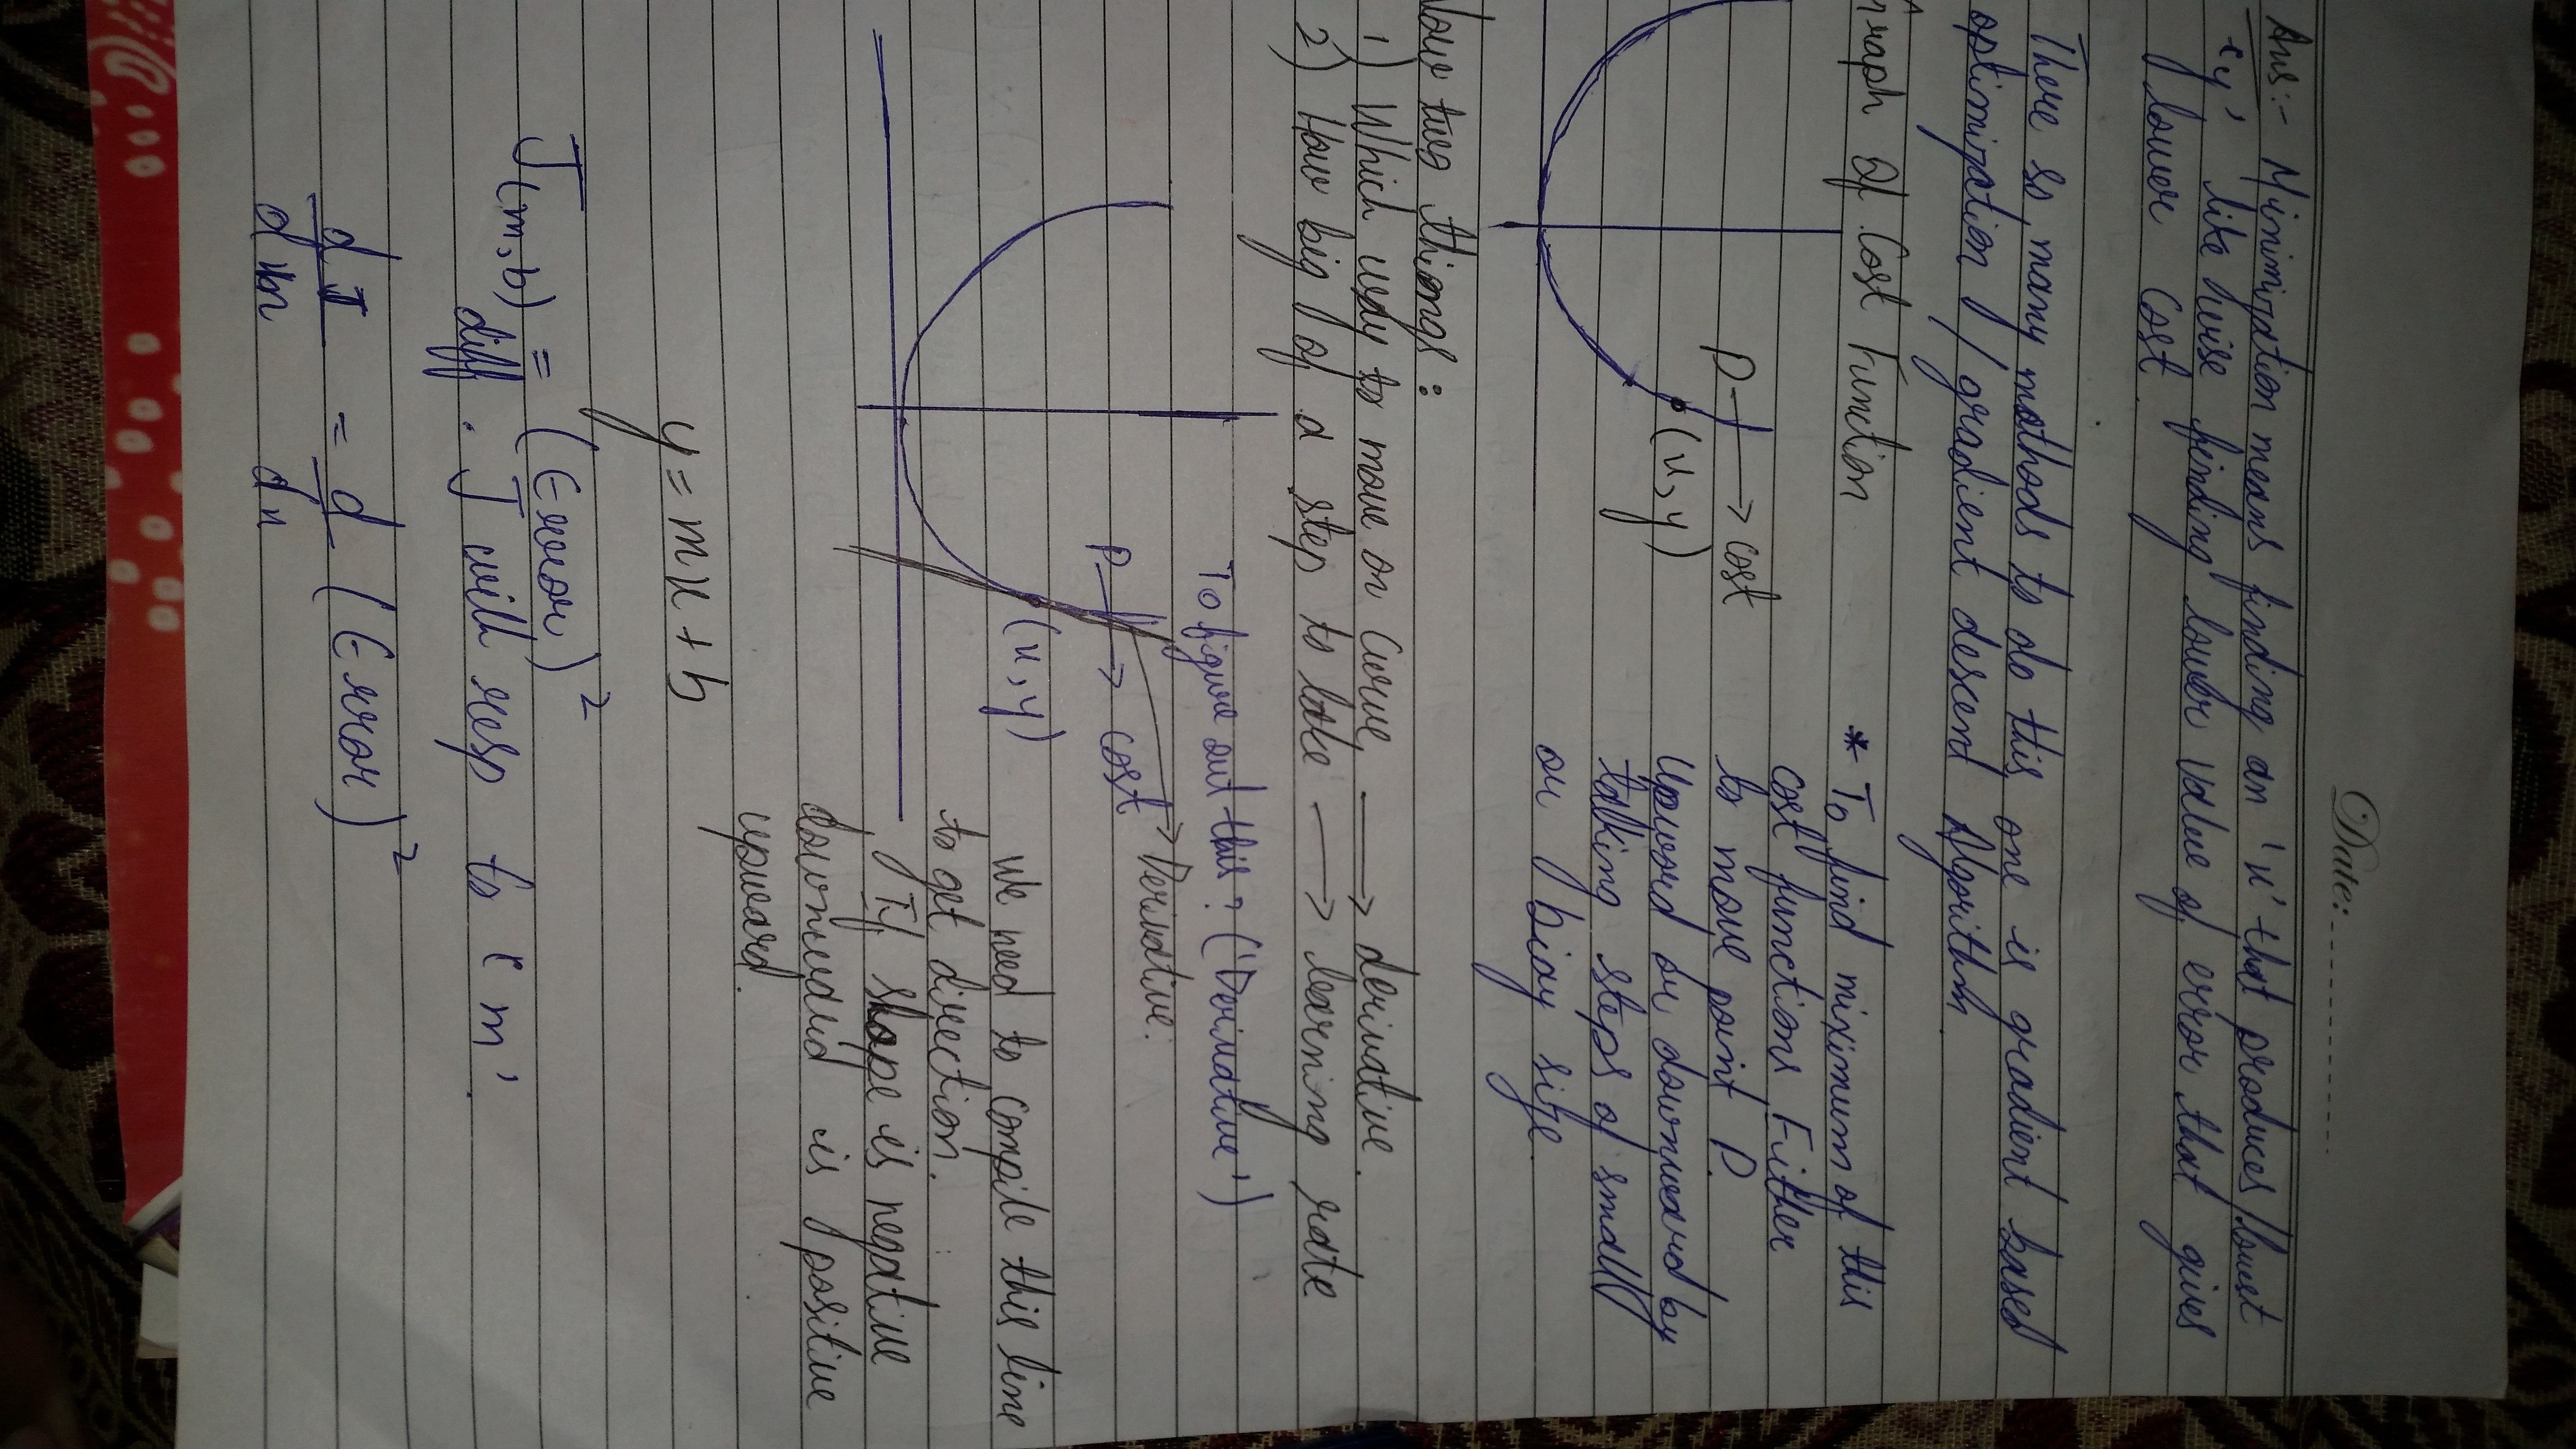 Date:
Ans:- Minimization means finding an 'x' that produces lowest
'y', like hwise finding lowebr value of error that gives
lower Cost.
There so many mathods to do this one is gradient based
optimization / gradient descent Algorithm.
Graph Of Cost Function
P → cost
(x, y)
* To find miximum of this
cost functions Either
to move point P
Upword or downword by
talking steps of small
or biay size.
Now two thiongs :
1) Which way to move on Curve, → derivative.
2) How big of a step to take → learning rate
To figure out this? ('Derivative')
P → cost
→ Derivative.
(x, y)
We need to compile this line
to get direction.
If slope is negative
downward is positive
upward.
y = mx + b
J(m, b) = (Error)²
diff. J with resp to 'm'.
dJ/dm = d/dx (Error)²